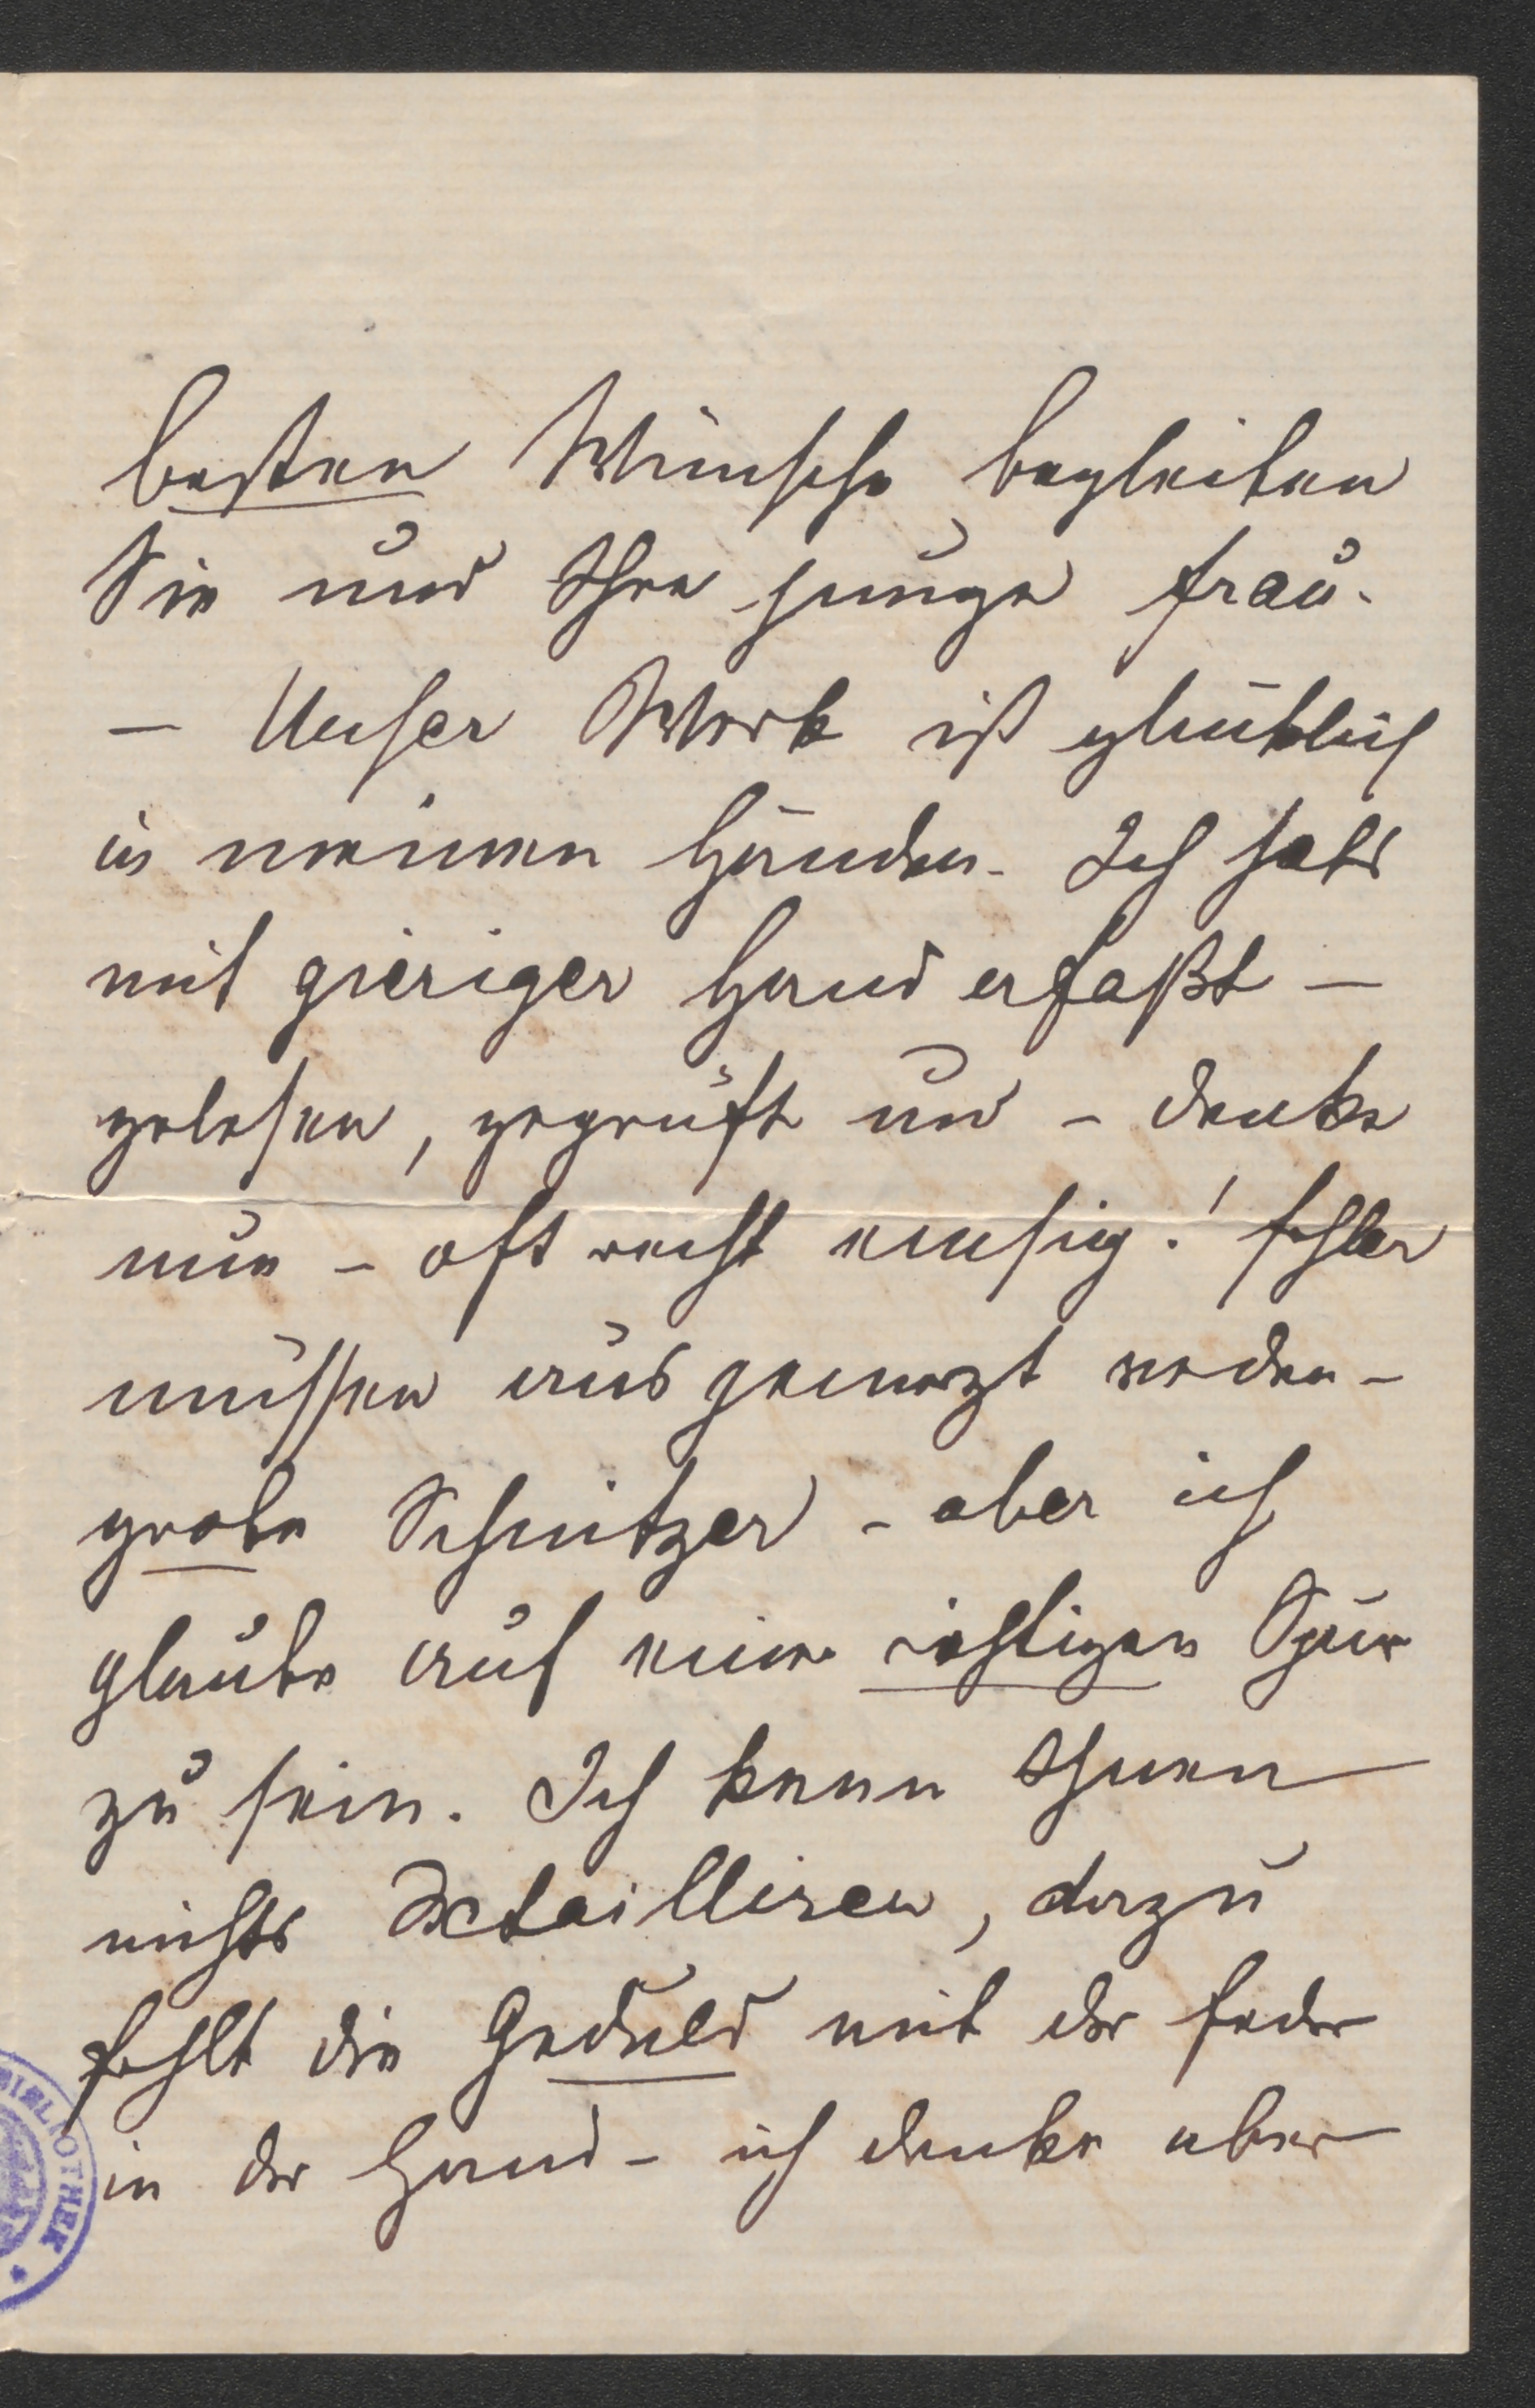 besten Wünsche begleiten
Sie und Ihre junge Frau.
— Unser Werk ist glücklich
in meinen Händen. Ich habs
mit gieriger Hand erfaßt —
gelesen, geprüft und – denke
nun – oft recht emsig! Fehler
müssen ausgemerzt werden –
grobe Schnitzer – aber ich
glaube auf einer richtigen Spur
zu sein. Ich kann Ihnen
nichts detailliren, dazu
fehlt die Geduld mit der Feder
in der Hand – ich denke aber
BIBLIOTHEK